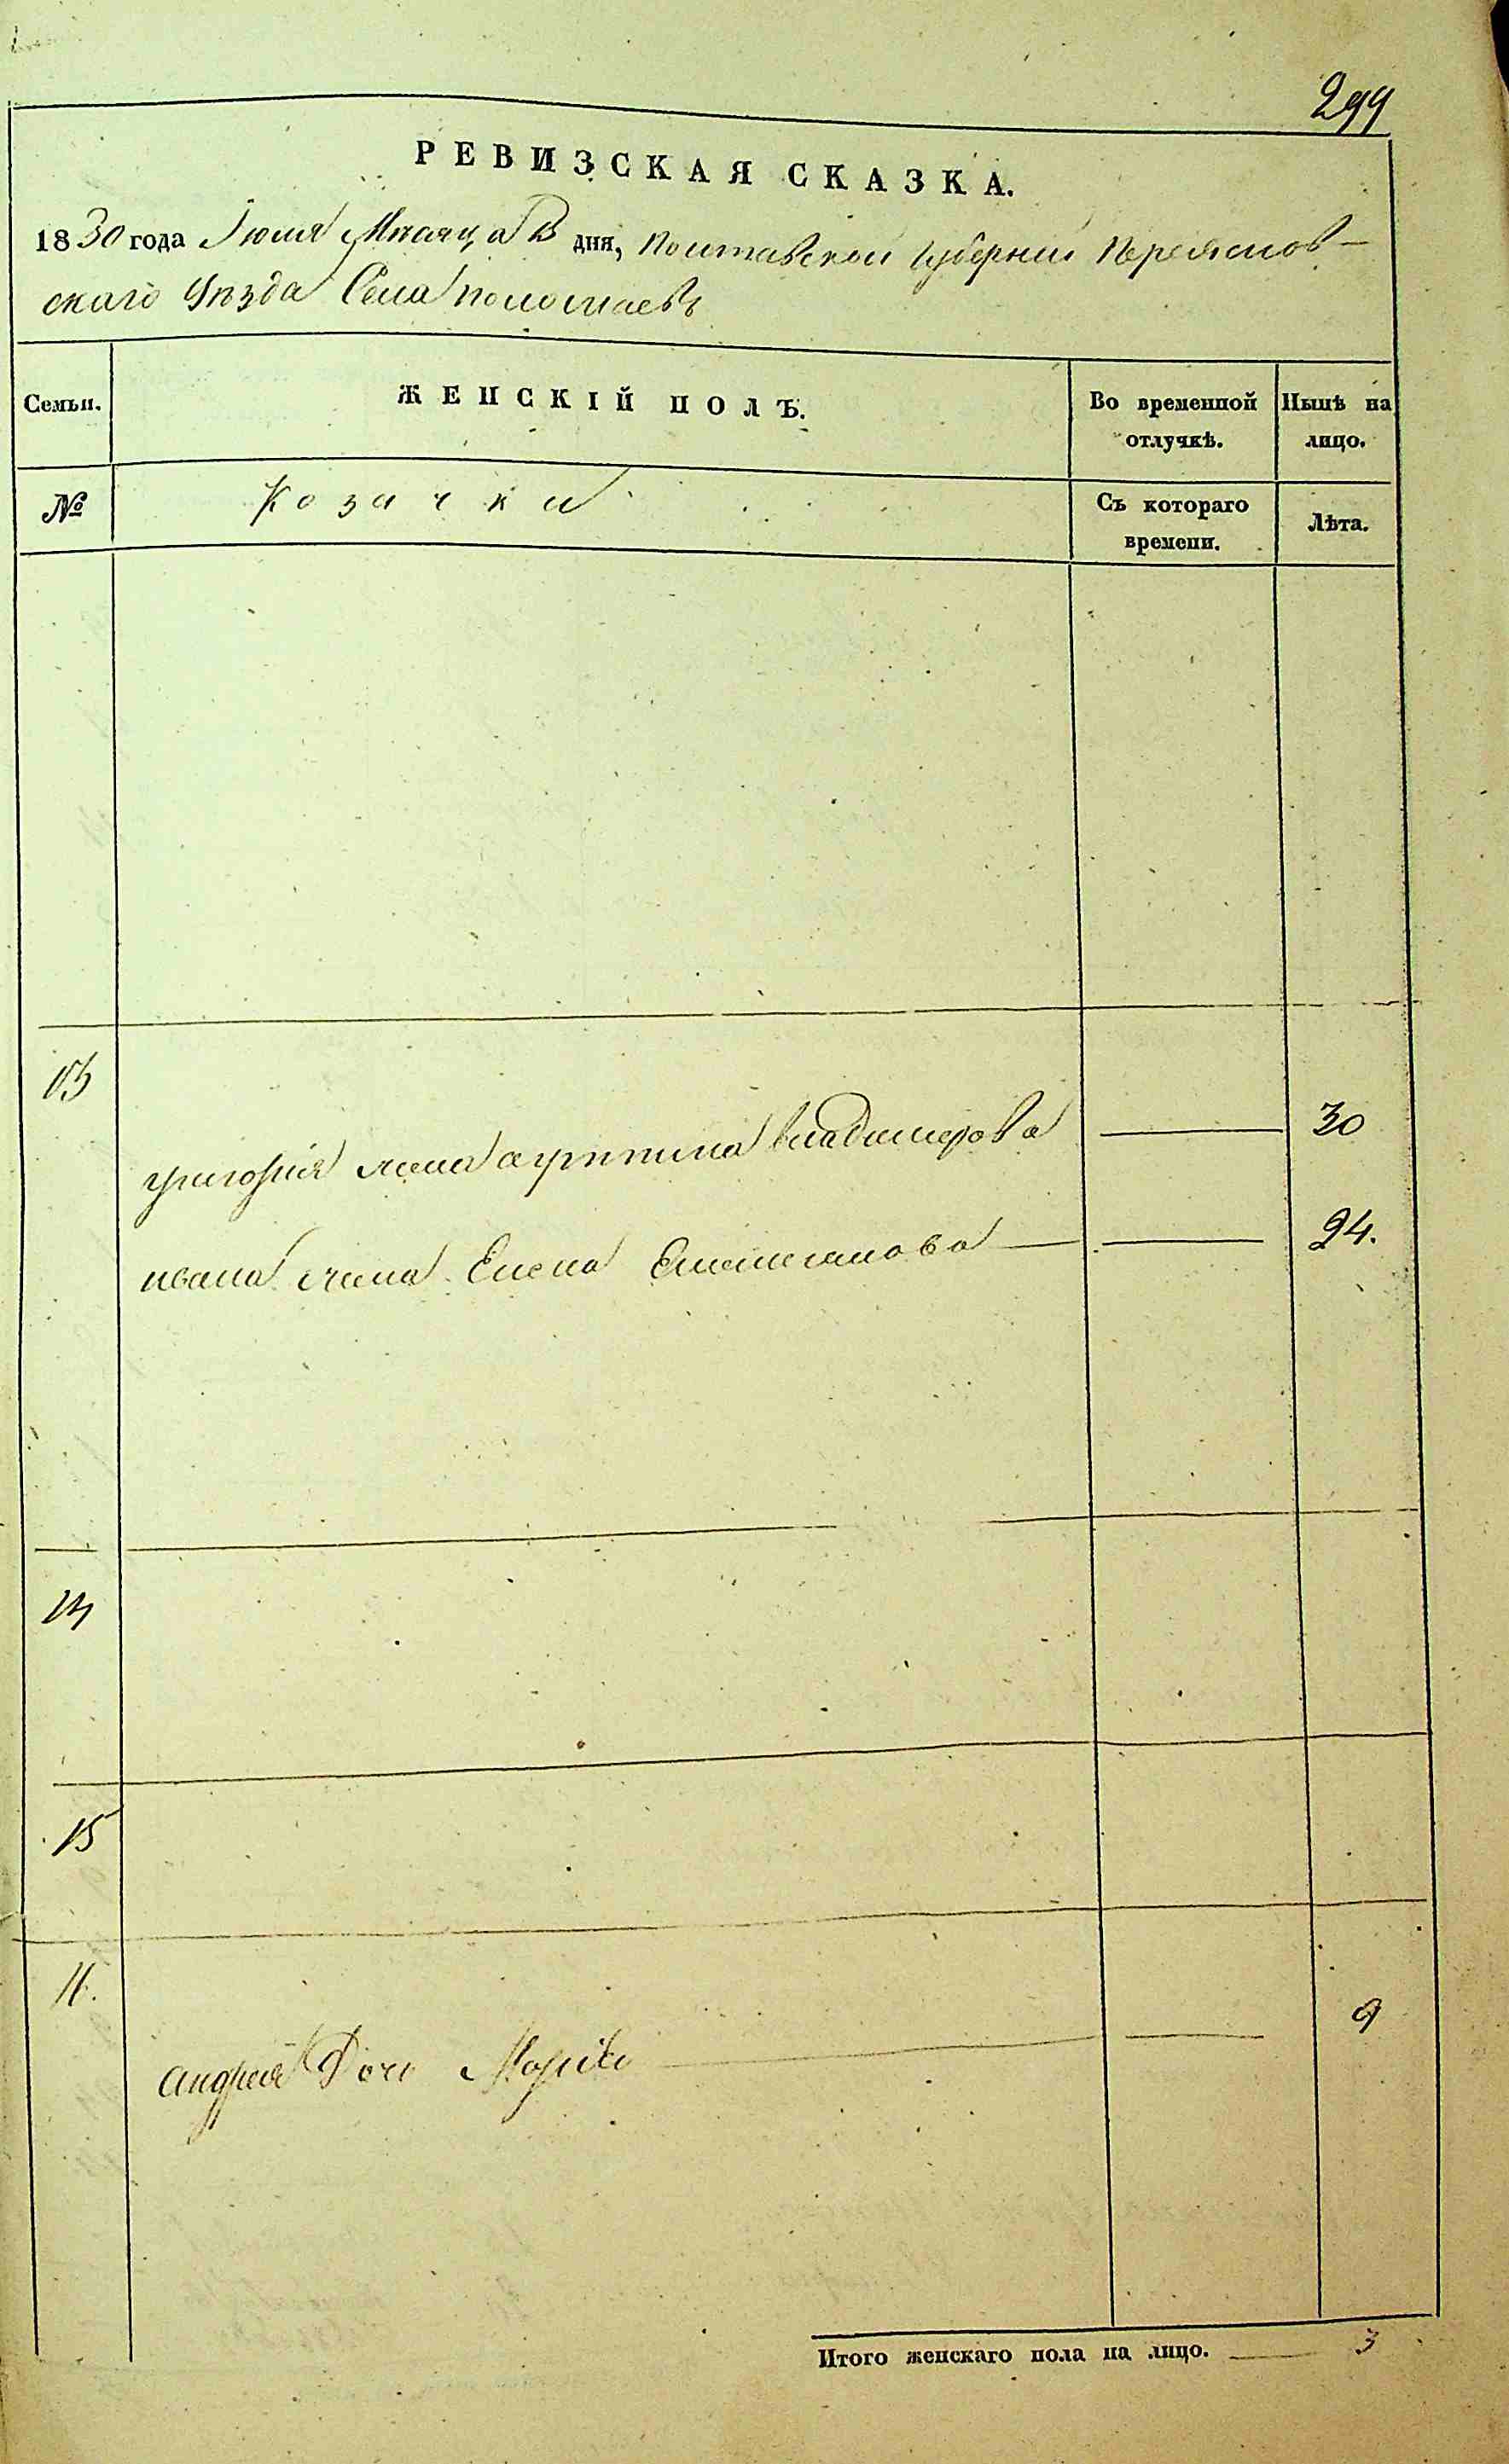 299
РЕВИЗСКАЯ СКАЗКА.
1830 года Июля Мѣсяца дня, Полтавской Губерніи Переяслов-
скаго Уѣзда Села
Семьи.
ЖЕНСКІЙ ПОЛЪ.
Во временной отлучкѣ.
Нынѣ на лицо.
№
Козачки
Съ котораго времени.
Лѣта.
13
Григорія жена Агрипина Владимерова 30
Ивана жена Елена Емельянова 24.
14
15
Андрея Дочь Марія 9
Итого женскаго пола на лицо. 3